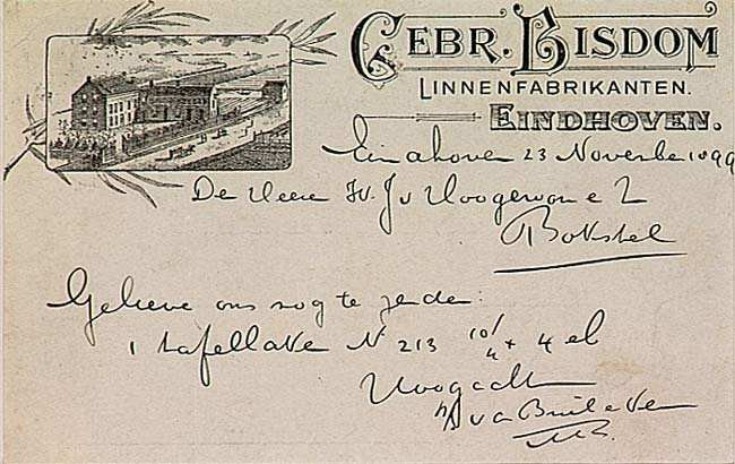 GEBR. BISDOM
LINNENFABRIKANTEN.
EINDHOVEN.
Eindhoven 23 Novembe 1899
De Heere W. J v Hoogerwou e Z
Bokstel
Gelieve ons nog te zende:
1 tafellaken N 213 10/4 x 4 el
Hoogacht